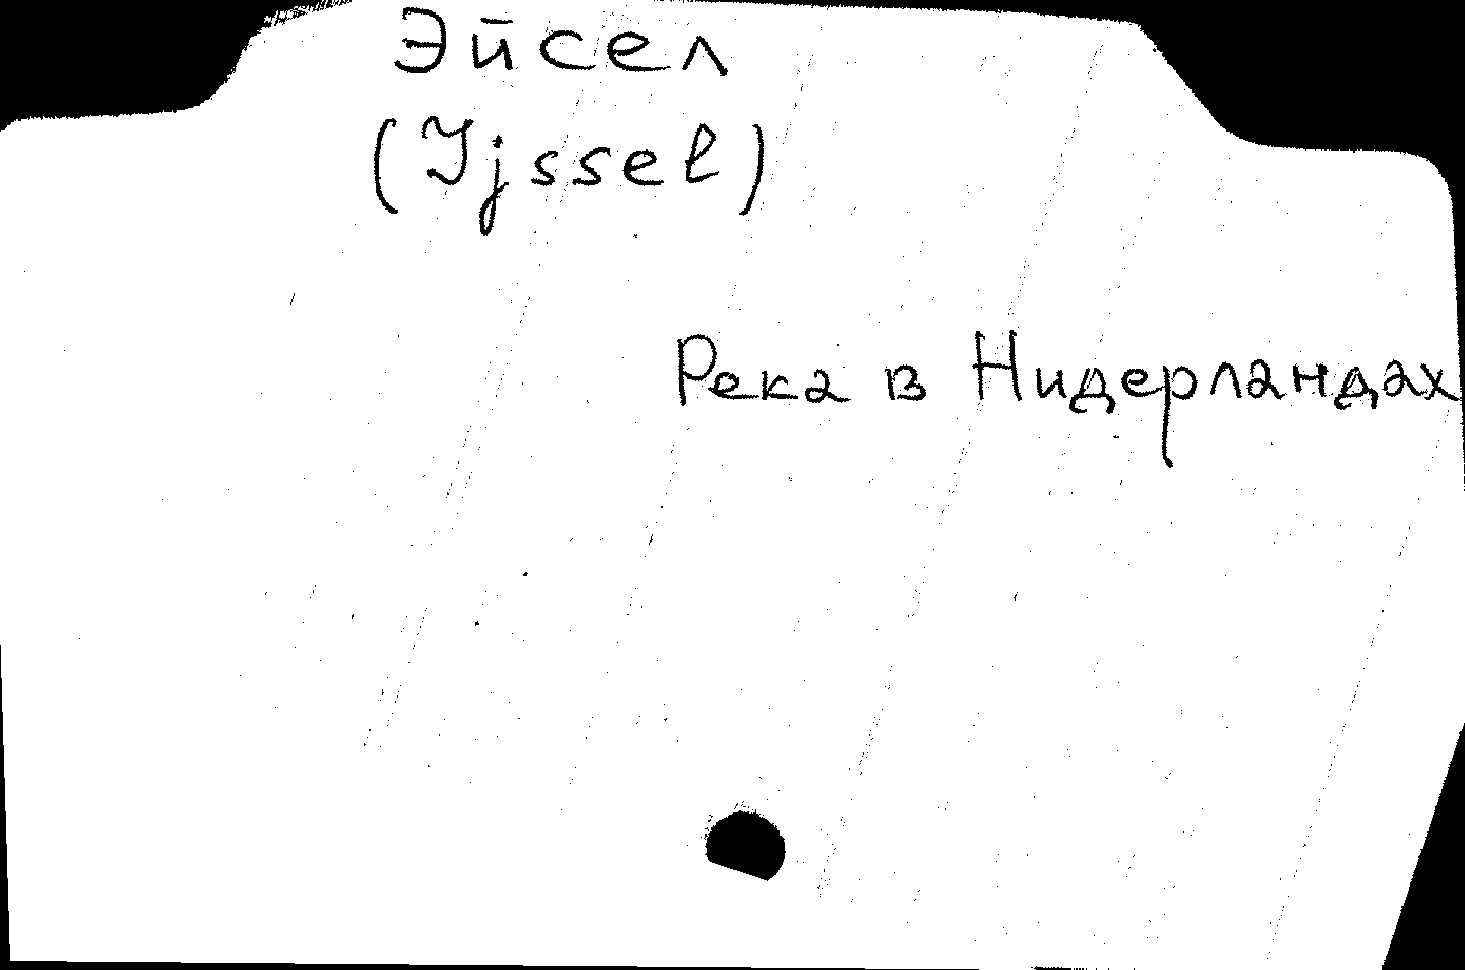 Эйсел
(Ijssel)
Река в Нидерландах